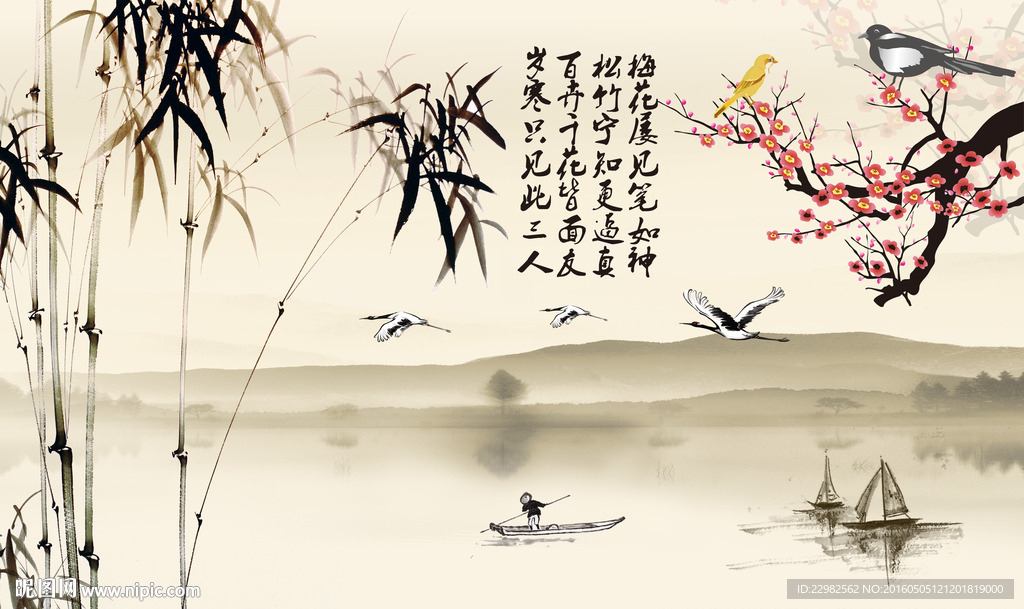 梅花屡见笔如神
松竹宁知更逼真
百卉千花皆面友
岁寒只见此三人
昵图网 www.nipic.com
ID:22982562 NO:20160505121201819000